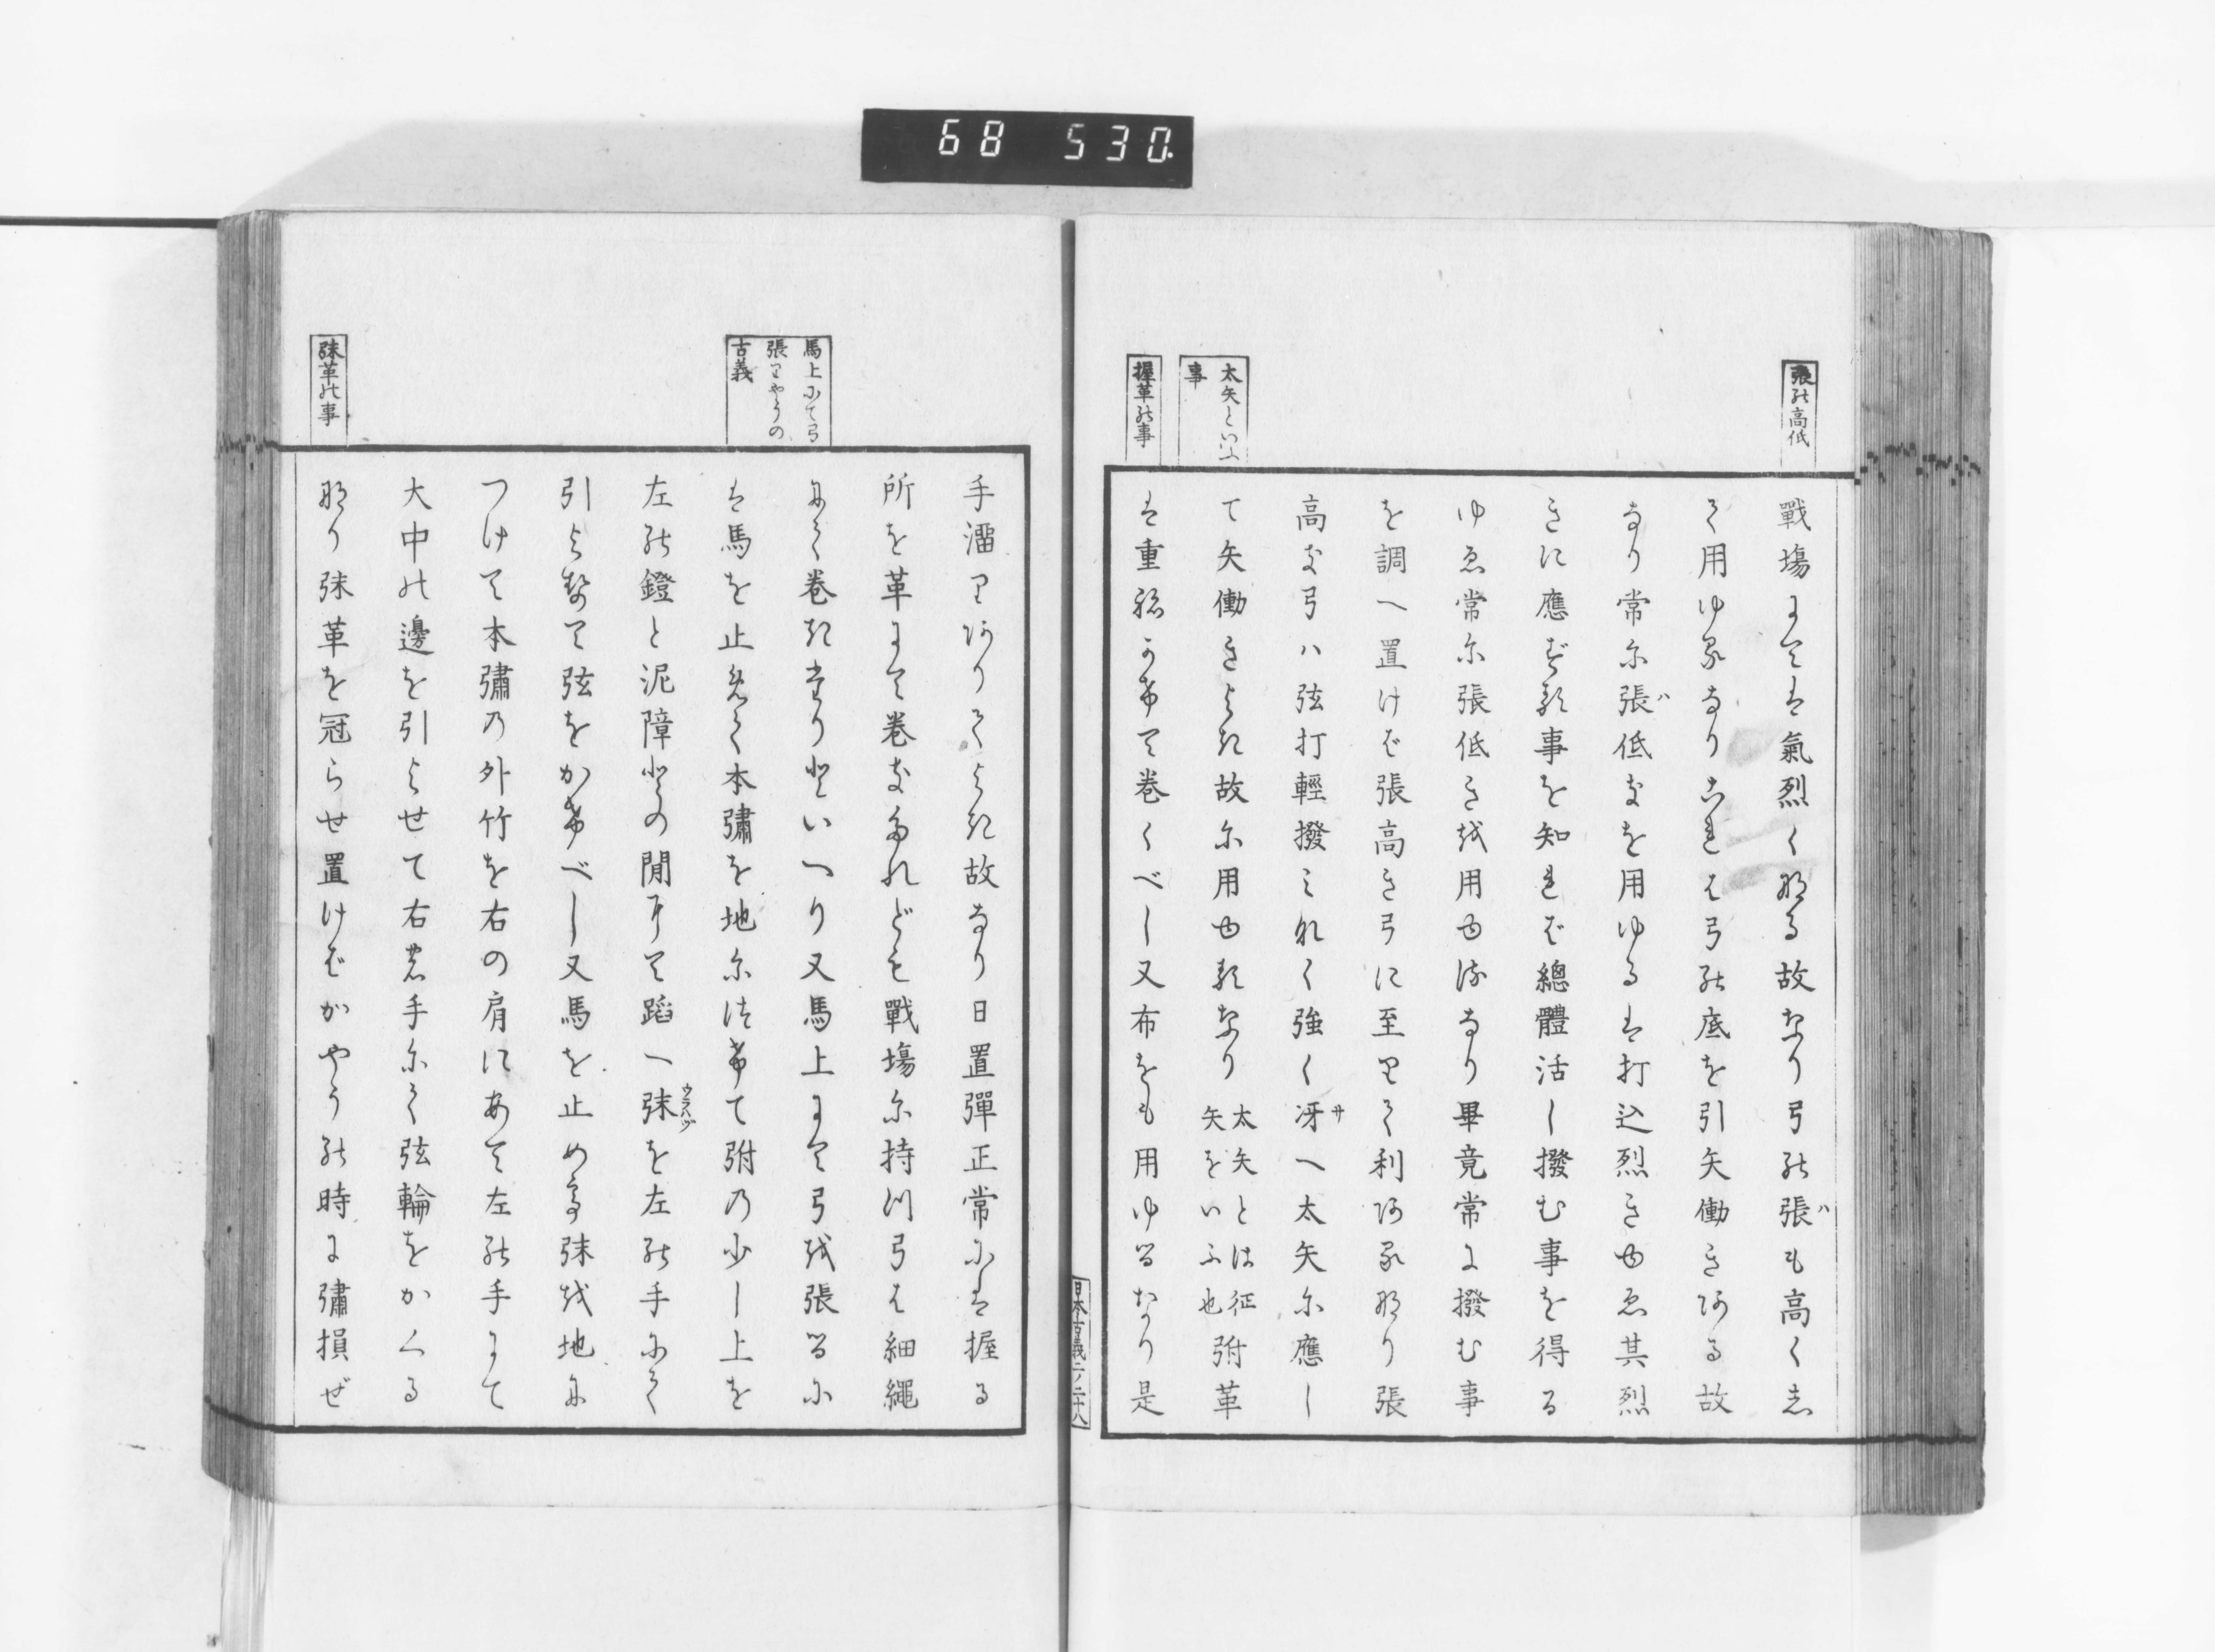 68 530
張の高低
戰塲にては氣烈く成る故なり弓の張も高くし
ハ
て用ゆるなり然れは弓の底を引矢働きある故
なり常に張低なを用ゆるは打込烈きゆゑ其烈
ハ
きに應ずる事を知れば總體活し撥む事を得る
ゆゑ常に張低きを用ゆるなり畢竟常に撥む事
を調へ置けば張高き弓に至りて利ある成り張
高な弓ハ弦打輕撥みなく強く冴へ太矢に應し
サ
て矢働きよき故に用ゆるなり
太矢とは征
矢をいふ也
弣革
は重ねかけて巻くべし又布をも用ゆるなり是
太矢といふ
事
握革の事
日本古義二ノ二十八
手溜りありてよき故なり日置彈正常には握る
所を革にて巻なたれども戰塲に持つ弓は細繩
にて巻きたりといへり又馬上にて弓を張るに
は馬を止めて本弰を地につけて弣の少し上を
左の鐙と泥障との間にて蹈へ弭を左の手にて
ウラハヅ
引よせて弦をかけべし又馬を止めず弭を地に
つけて本弰の外竹を右の肩にあて左の手にて
大中の邊を引よせて右の手にて弦輪をかくる
成り弭革を冠らせ置けばかやうの時に弰損ぜ
馬上にて弓
張りやうの
古義
弭革の事